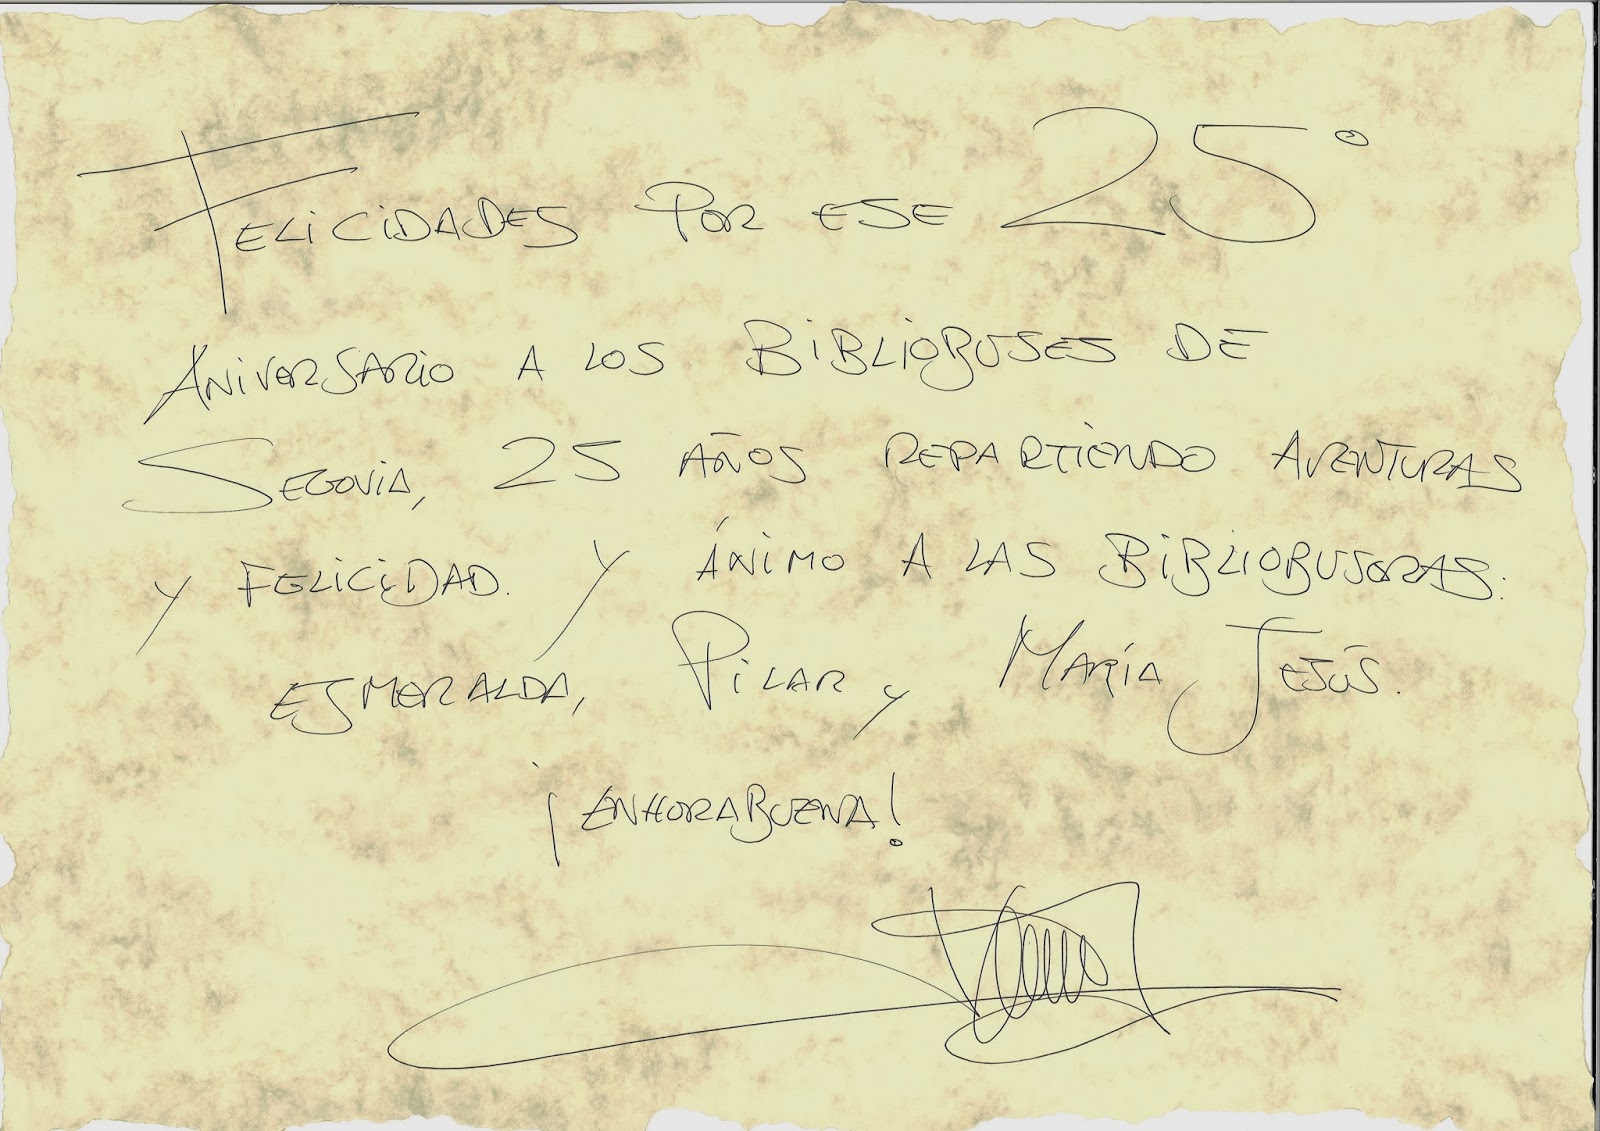 FELICIDADES POR ESE 25º
ANIVERSARIO A LOS BIBLIOBUSES DE
SEGOVIA, 25 AÑOS REPARTIENDO AVENTURAS
Y FELICIDAD. Y ÁNIMO A LAS BIBLIOBUSERAS:
ESMERALDA, PILAR Y MARÍA JESÚS.
¡ENHORABUENA!